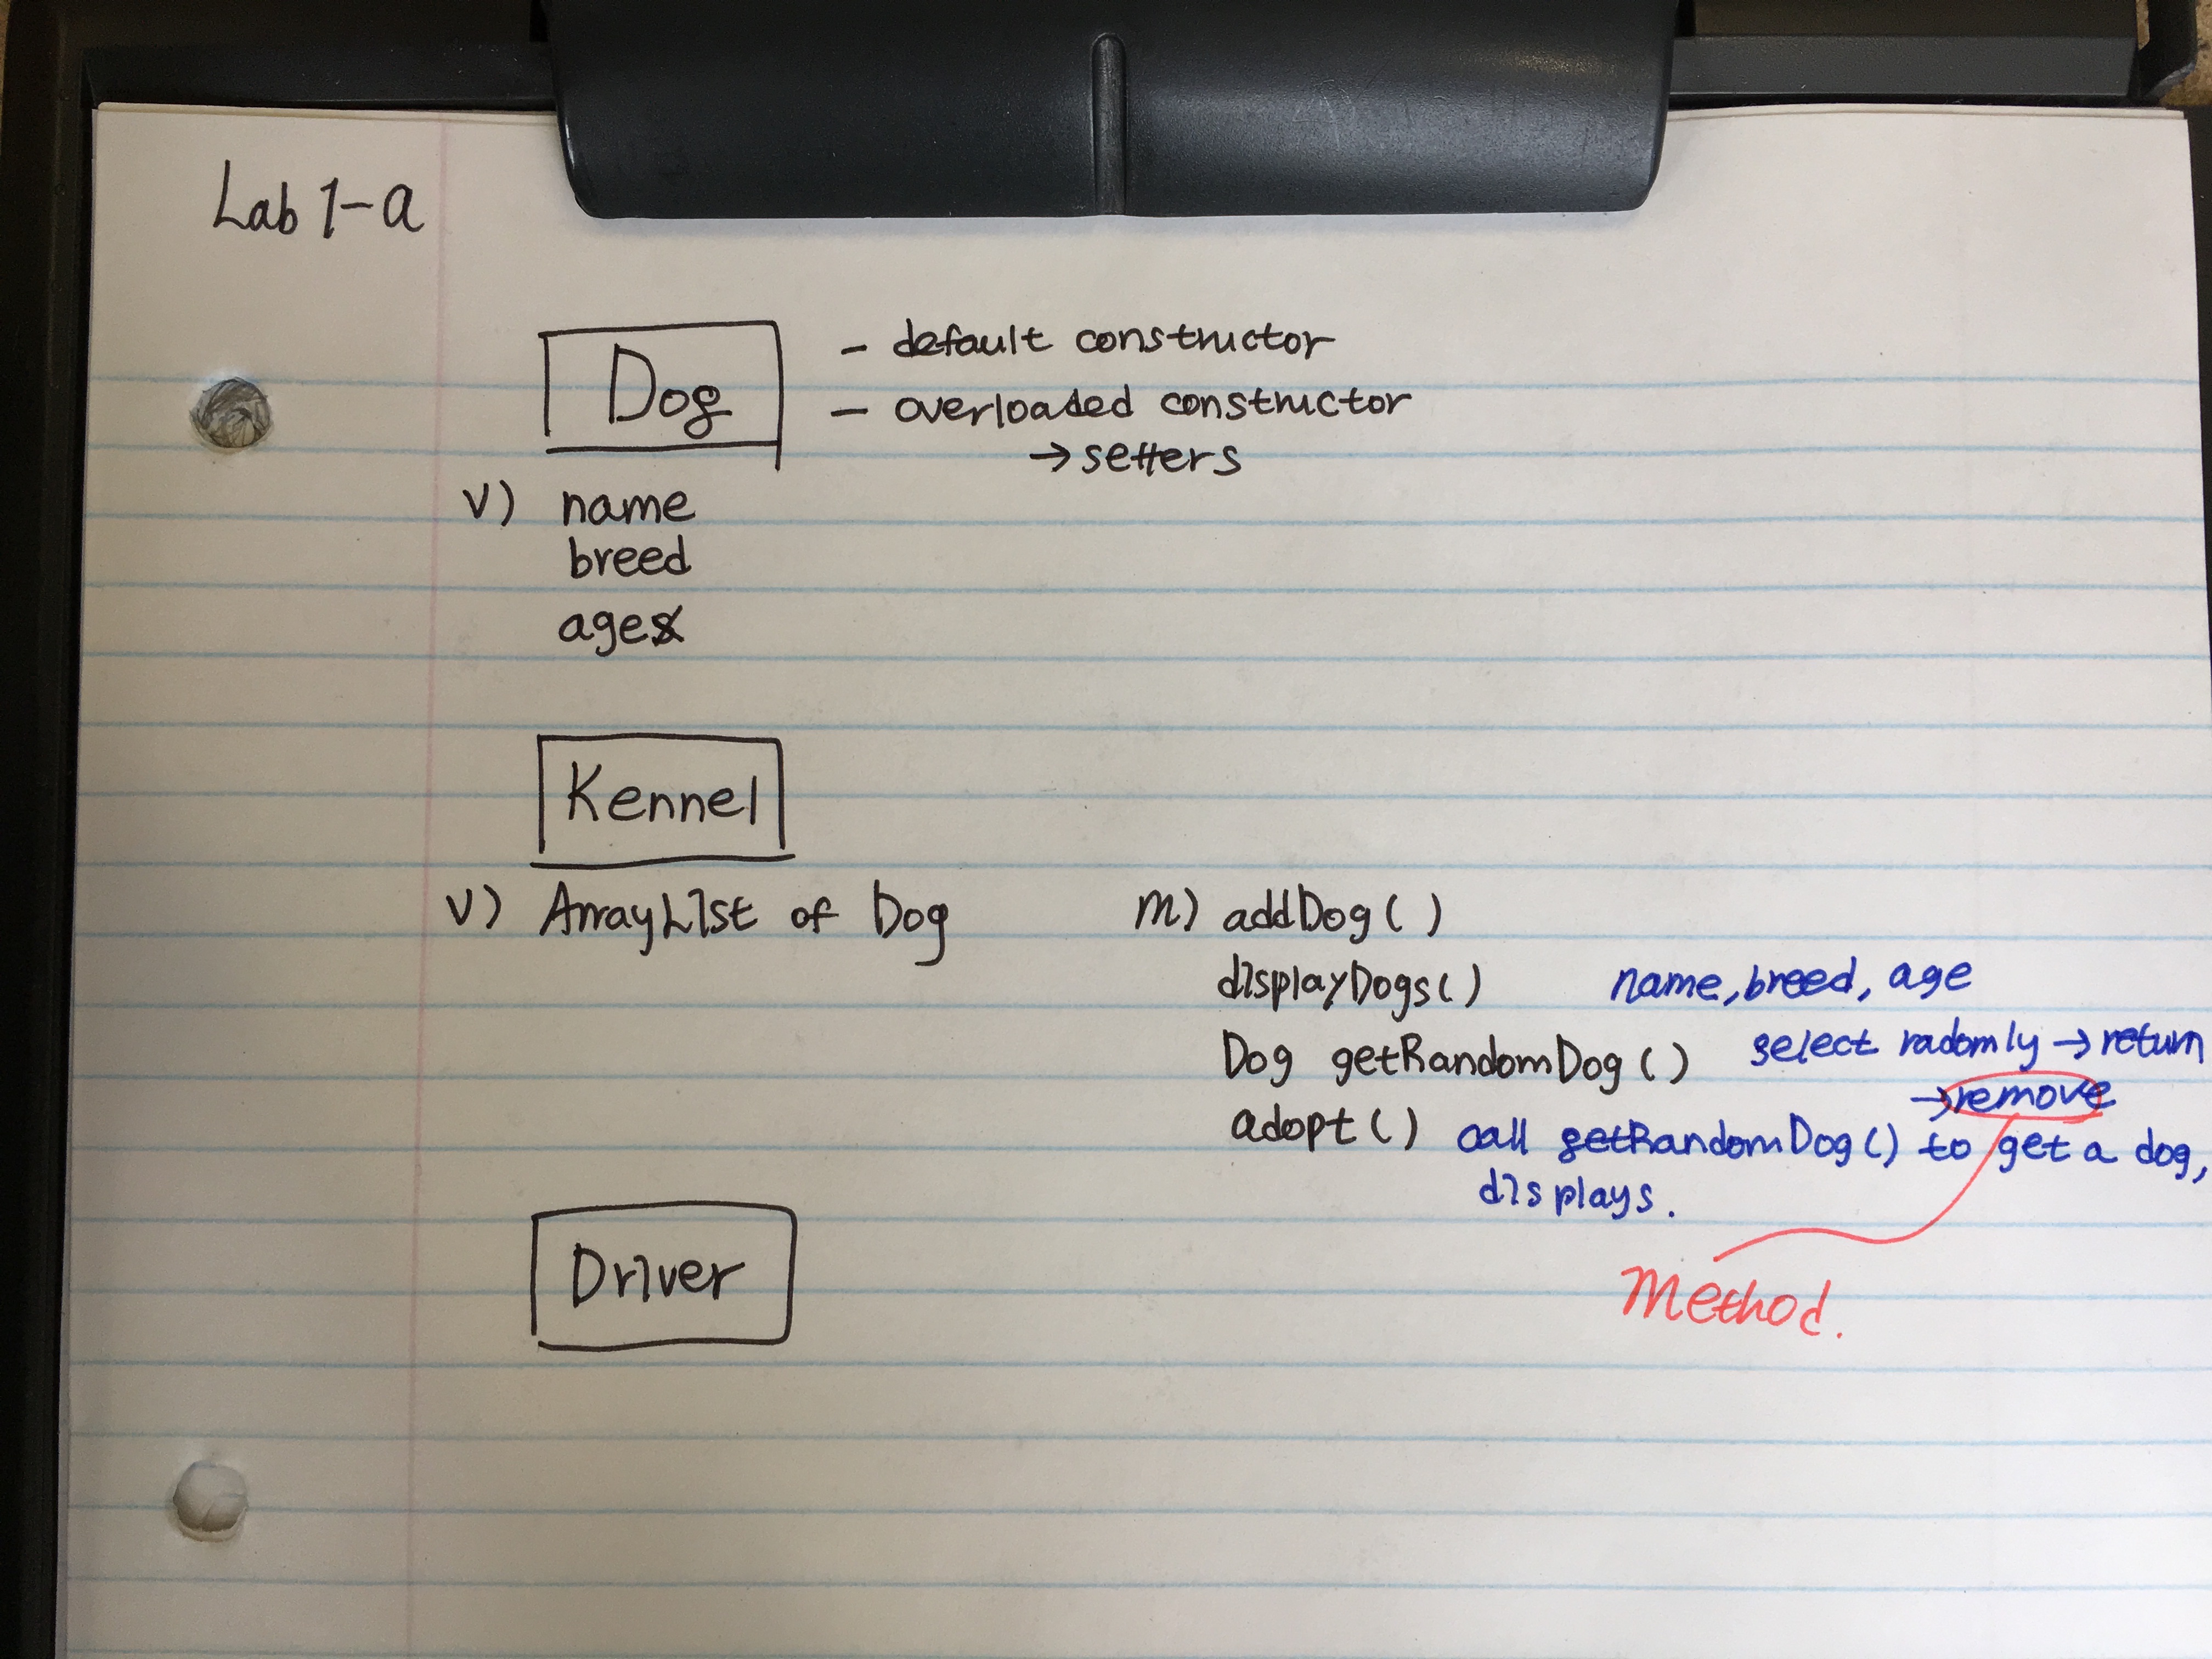 Lab 1-a
Dog
- default constructor
- overloaded constructor
→ setters
V) name
breed
age
Kennel
V) ArrayList of Dog
m) addDog ( )
displayDogs ( ) name, breed, age
Dog getRandomDog ( ) select radomly → return
→ remove
adopt ( ) call getRandomDog ( ) to get a dog,
displays.
Driver
Method.